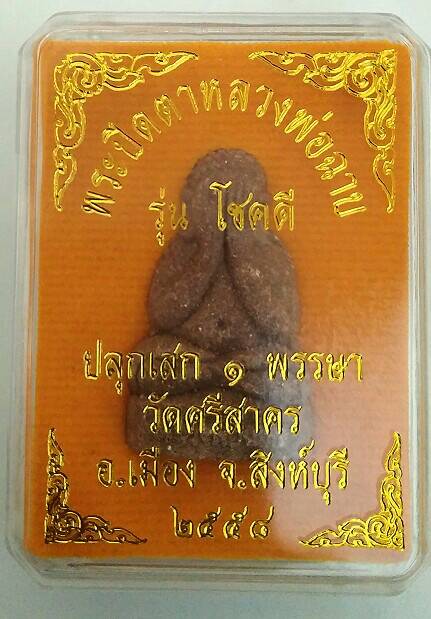 พระปิดตาหลวงพ่อฉาบ
รุ่น โชคดี
ปลุกเสก ๑ พรรษา
วัดศรีสาคร
อ.เมือง จ.สิงห์บุรี
๒๕๕๔